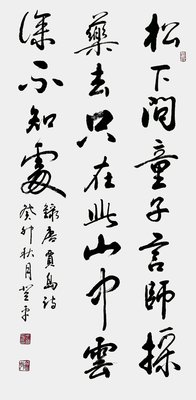 松下問童子言師採
藥去只在此山中雲
深不知處
錄唐賈島詩
癸卯秋月